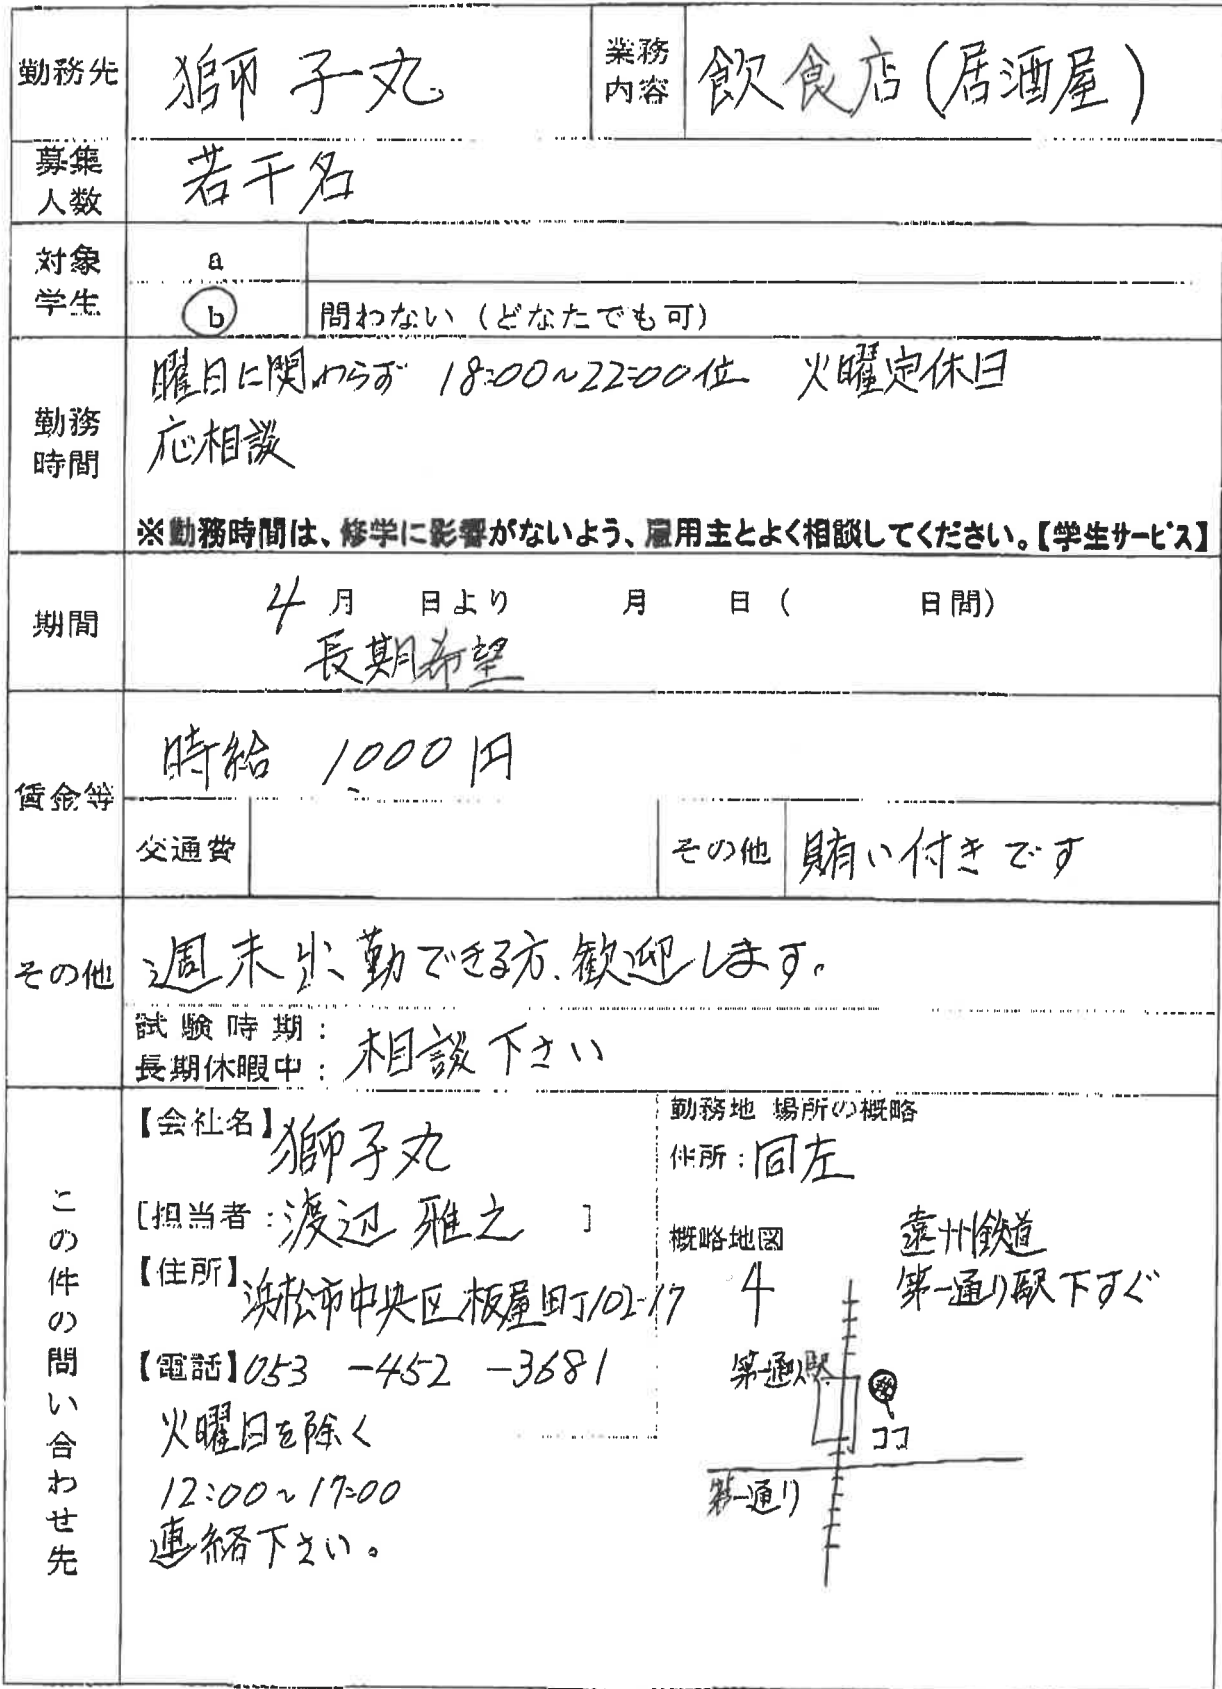 勤務先 獅子丸 業務内容 飲食店(居酒屋)
募集人数 若干名
対象学生 a
b 問わない(どなたでも可)
勤務時間 曜日に関わらず 18:00~22:00位 火曜定休日
応相談
※勤務時間は、修学に影響がないよう、雇用主とよく相談してください。【学生サービス】
期間 4月 日より 月 日( 日間)
長期希望
賃金等 時給 1,000円
交通費 その他 賄い付きです
その他 週末出勤できる方、歓迎します。
試験時期:
長期休暇中: 相談下さい
この件の問い合わせ先
【会社名】獅子丸
[担当者:渡辺 雅之 ]
【住所】浜松市中央区板屋町102-17
【電話】053 -452 -3681
火曜日を除く
12:00~17:00
連絡下さい。
勤務地 場所の概略
住所:同左
概略地図
遠州鉄道
第一通り駅下すぐ
第一通り駅
ココ
第一通り